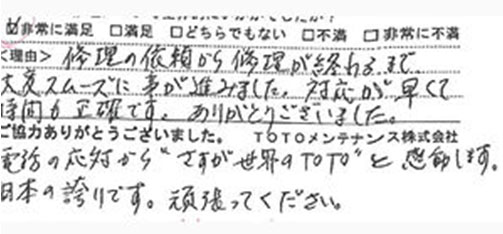 ☑非常に満足 □満足 □どちらでもない □不満 □非常に不満
<理由> 修理の依頼から修理が終わるまで、
大変スムーズに事が進みました。対応が早くて
時間も正確です。ありがとうございました。
ご協力ありがとうございました。 TOTOメンテナンス株式会社
電話の応対から“さすが世界のTOTO”と感動します。
日本の誇りです。頑張ってください。